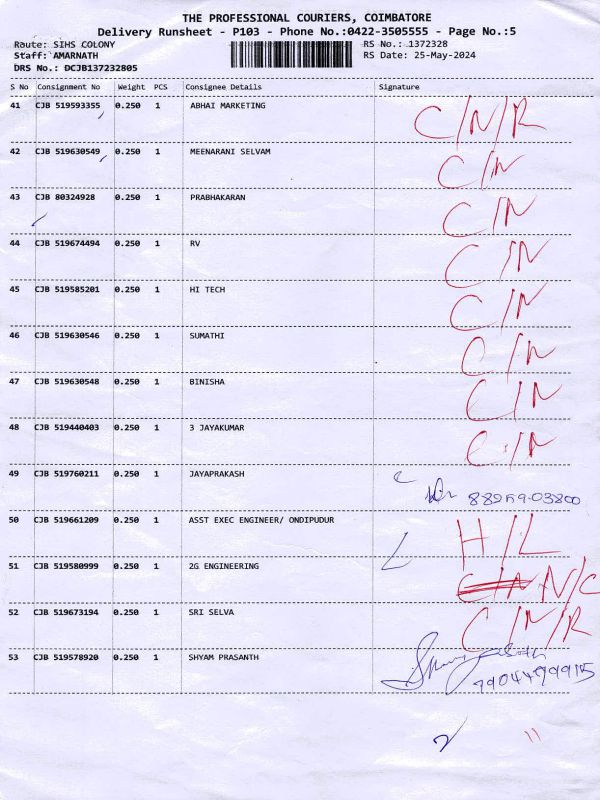 THE PROFESSIONAL COURIERS, COIMBATORE
Delivery Runsheet - P103 - Phone No.:0422-3505555 - Page No.:5
Route: SIHS COLONY RS No.: 1372328
Staff: AMARNATH RS Date: 25-May-2024
DRS No.: DCJB137232805
S No Consignment No Weight PCS Consignee Details Signature
41 CJB 519593355 0.250 1 ABHAI MARKETING C/N/R
42 CJB 519630549 0.250 1 MEENARANI SELVAM C/N
43 CJB 80324928 0.250 1 PRABHAKARAN C/N
44 CJB 519674494 0.250 1 RV C/N
45 CJB 519585201 0.250 1 HI TECH C/N
46 CJB 519630546 0.250 1 SUMATHI C/N
47 CJB 519630548 0.250 1 BINISHA C/N
48 CJB 519440403 0.250 1 3 JAYAKUMAR C/N
49 CJB 519760211 0.250 1 JAYAPRAKASH
50 CJB 519661209 0.250 1 ASST EXEC ENGINEER/ ONDIPUDUR H/L
51 CJB 519580999 0.250 1 2G ENGINEERING N/C
52 CJB 519673194 0.250 1 SRI SELVA C/N/R
53 CJB 519578920 0.250 1 SHYAM PRASANTH
2 11